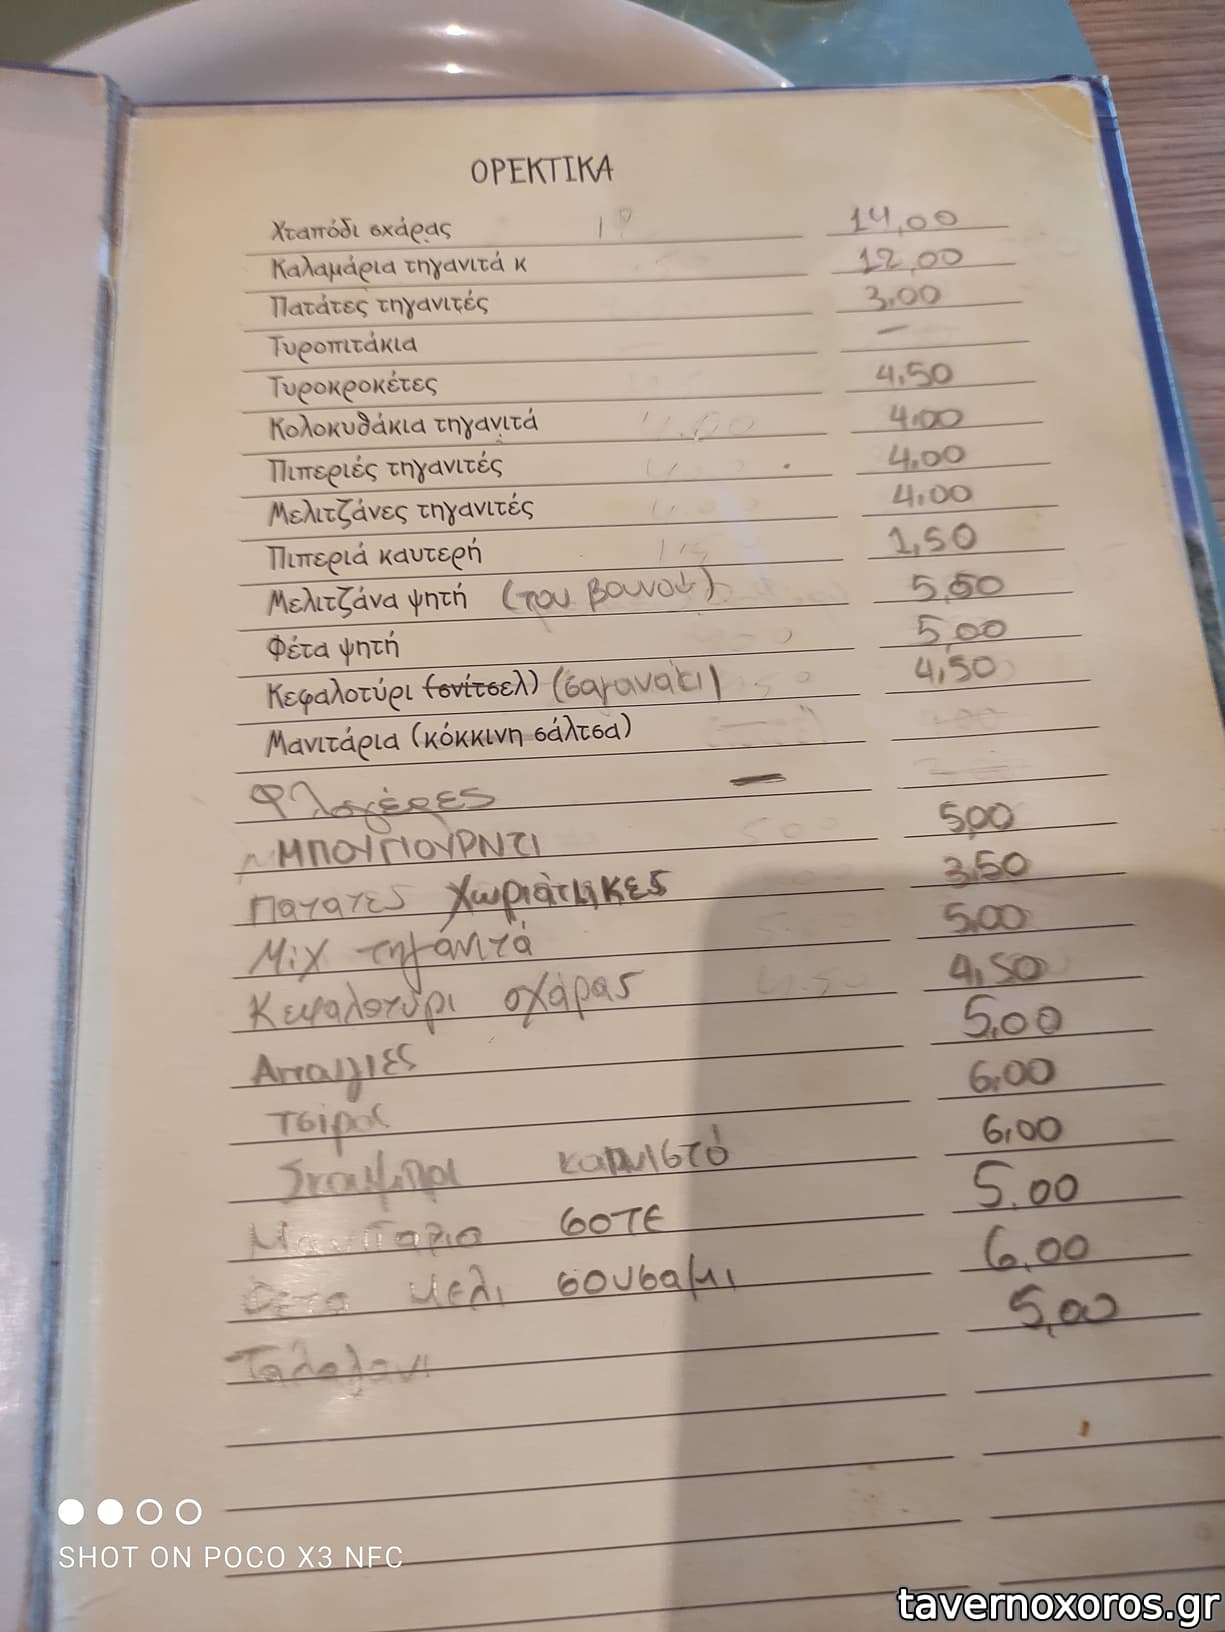 ΟΡΕΚΤΙΚΑ
Χταπόδι σχάρας 14,00
Καλαμάρια τηγανιτά κ 12,00
Πατάτες τηγανιτές 3,00
Τυροπιτάκια —
Τυροκροκέτες 4,50
Κολοκυθάκια τηγανιτά 4,00
Πιπεριές τηγανιτές 4,00
Μελιτζάνες τηγανιτές 4,00
Πιπεριά καυτερή 1,50
Μελιτζάνα ψητή (του βουνού) 5,50
Φέτα ψητή 5,00
Κεφαλοτύρι (σνίτσελ) (σαγανάκι) 4,50
Μανιτάρια (κόκκινη σάλτσα)
Φλογέρες —
ΜΠΟΥΓΙΟΥΡΝΤΙ 5,00
Πατατες Χωριάτικες 3,50
Μιχ τηγανιτά 5,00
Κεφαλοτυρι σχάρας 4,50
5,00
Τσίρος 6,00
καπνιστό 6,00
Μανιταρια σοτε 5.00
Φετα μελι σουσαμι 6,00
5,00
SHOT ON POCO X3 NFC
tavernoxoros.gr